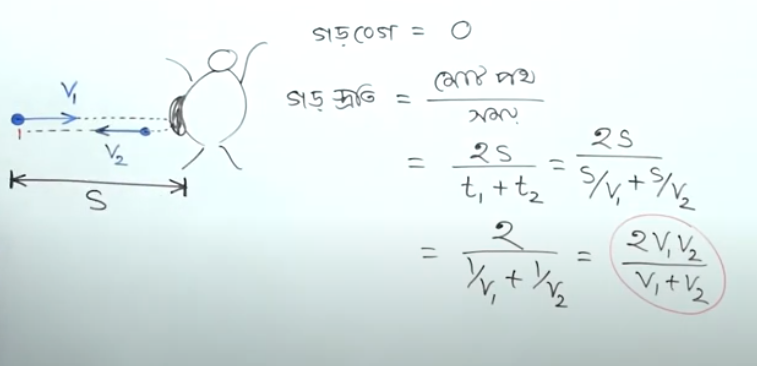 গড়বেগ = 0
V₁
গড় দ্রুতি = মোট পথ / সময়
V₂
S
= 2S / (t₁ + t₂) = 2S / (S/V₁ + S/V₂)
= 2 / (1/V₁ + 1/V₂) = 2V₁V₂ / (V₁ + V₂)